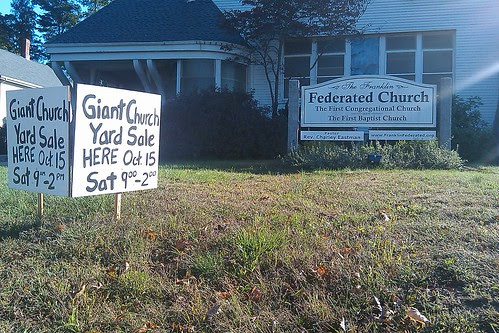 Giant Church
Yard Sale
HERE Oct 15
Sat 9ᵃᵐ-2ᴾᴹ
Giant Church
Yard Sale
HERE Oct 15
Sat 9⁰⁰-2⁰⁰
The Franklin
Federated Church
The First Congregational Church
The First Baptist Church
Pastor
Rev. Charley Eastman
www.FranklinFederated.org